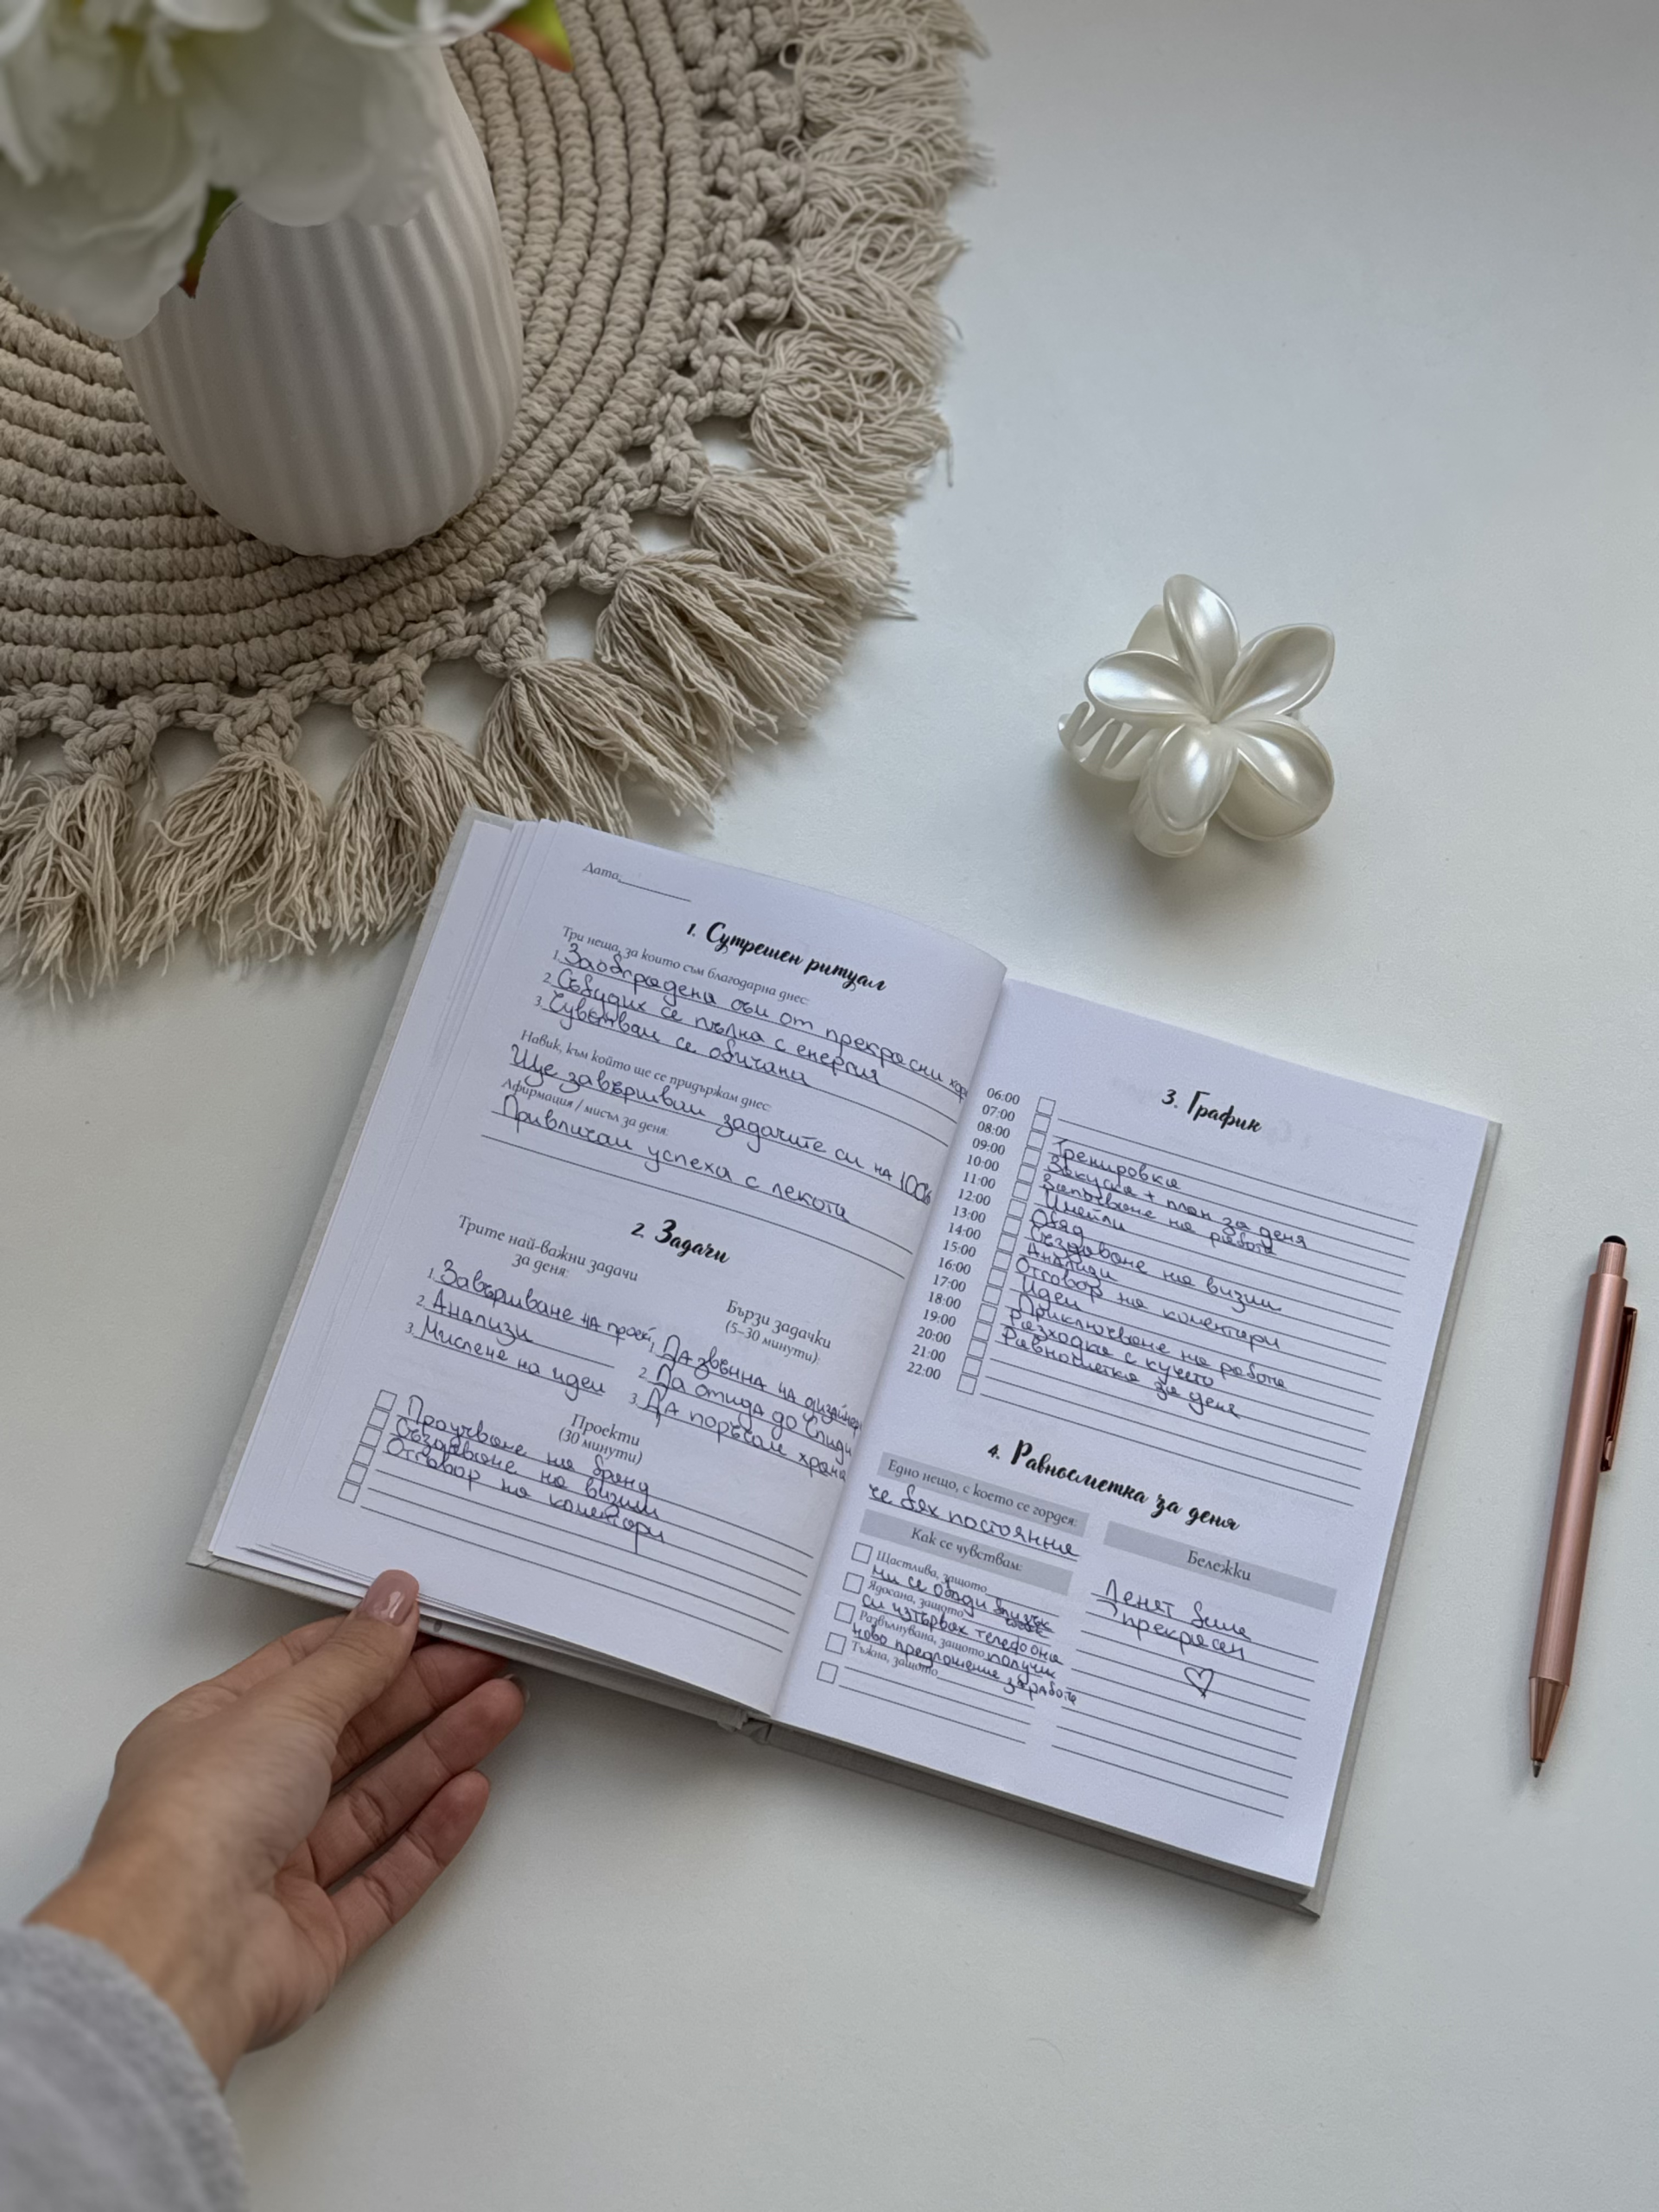 Дата:
1. Сутрешен ритуал
Три неща, за които съм благодарна днес:
1. Заобградена съм от прекрасни хора
2. Събудих се пълна с енергия
3. Чувствам се обичана
Навик, към който ще се придържам днес:
Ще завършвам задачите си на 100%
Афирмация / мисъл за деня:
Привличам успеха с лекота
2. Задачи
Трите най-важни задачи
за деня:
1. Завършване на проект
2. Анализи
3. Мислене на идеи
Бързи задачки
(5-30 минути):
1. Да звънна на дизайнер
2. Да отида до Спиди
3. Да поръчам храна
Проекти
(30 минути)
Проучване на бранд
Създаване на визии
Отговор на коментари
3. График
06:00
07:00
08:00 Тренировка
09:00 Закуска + план за деня
10:00 Започване на работа
11:00 Имейли
12:00 Обяд
13:00 Създаване на визии
14:00 Анализи
15:00 Отговор на коментари
16:00 Идеи
17:00 Приключване на работа
18:00 Разходка с кучето
19:00 Равносметка за деня
20:00
21:00
22:00
4. Равносметка за деня
Едно нещо, с което се гордея:
че бях постоянна
Как се чувствам:
Щастлива, защото
ми се обади близък
Ядосана, защото
си изтървах телефона
Развълнувана, защото получих
ново предложение за работа
Тъжна, защото
Бележки
Денят беше
прекрасен